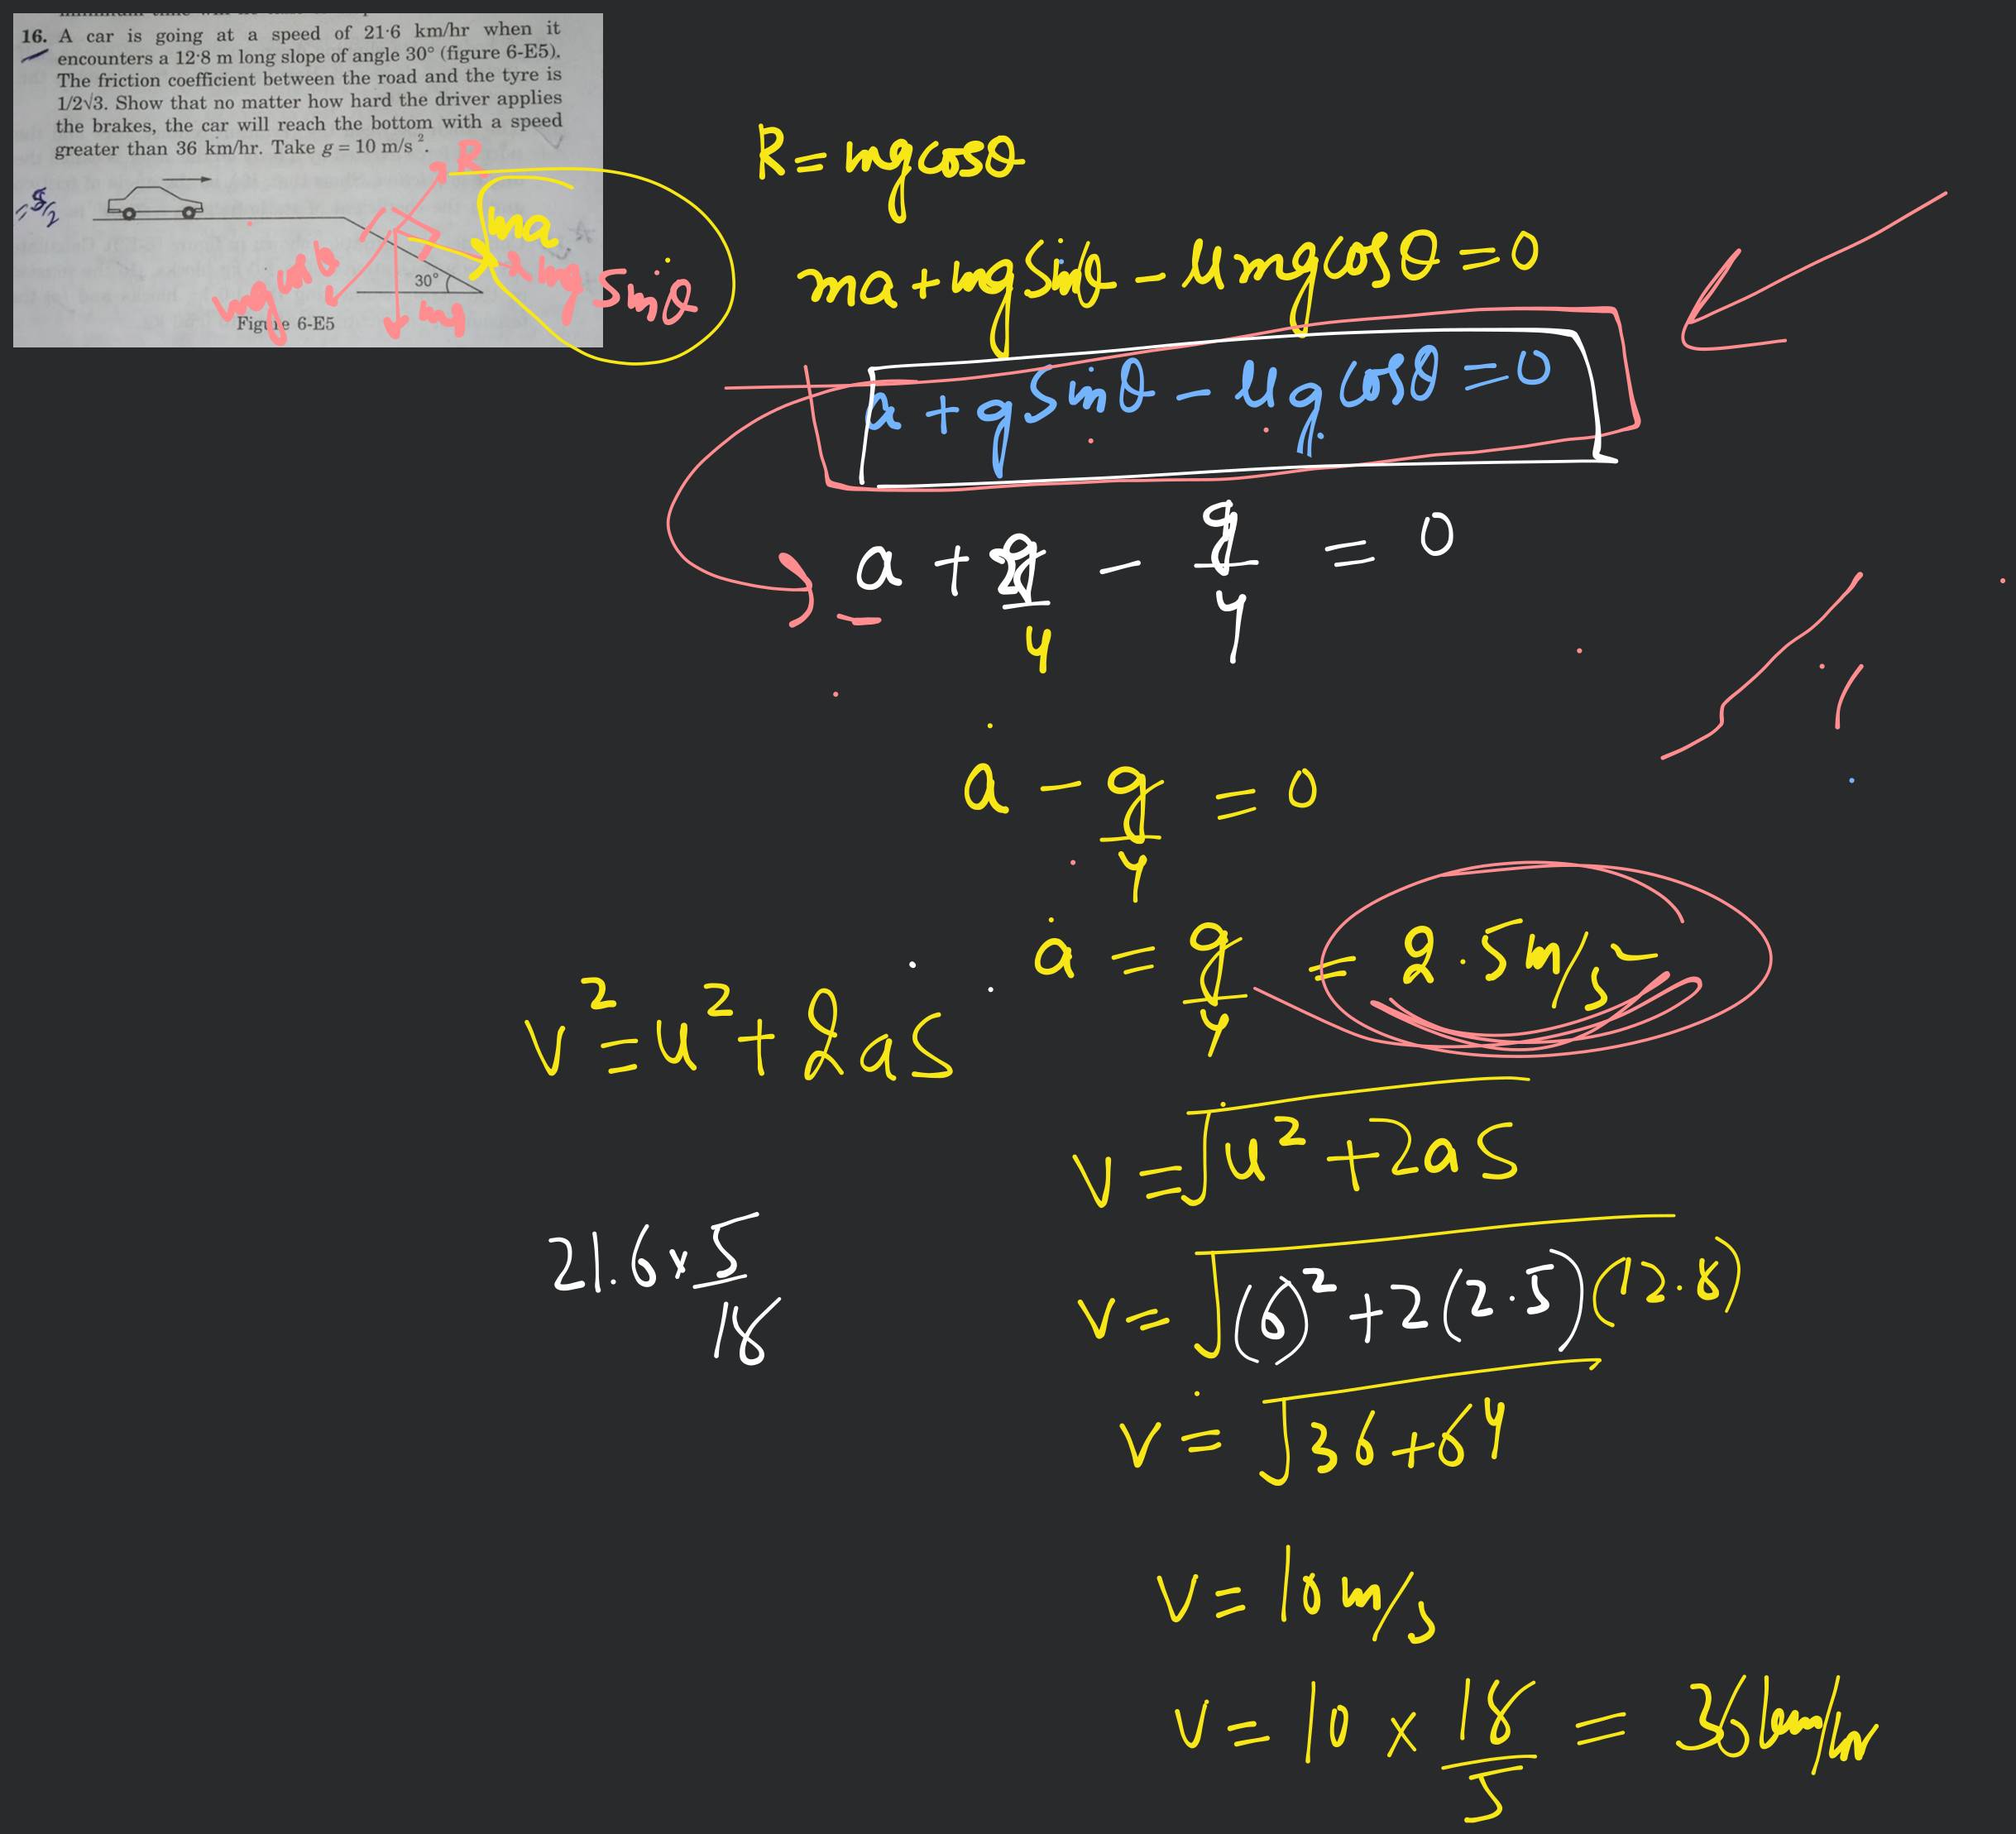 16. A car is going at a speed of 21·6 km/hr when it
encounters a 12·8 m long slope of angle 30° (figure 6-E5).
The friction coefficient between the road and the tyre is
1/2√3. Show that no matter how hard the driver applies
the brakes, the car will reach the bottom with a speed
greater than 36 km/hr. Take g = 10 m/s².
R
ma
mg cosθ
mg Sinθ
mg
30°
Figure 6-E5
R = mgcosθ
ma + mg Sinθ - μmgcosθ = 0
a + g Sinθ - μg cosθ = 0
a + 2g/4 - g/4 = 0
a - g/4 = 0
a = g/4 = 2.5 m/s²
v² = u² + 2as
v = √u² + 2as
21.6 × 5/18
v = √(6)² + 2(2.5)(12.8)
v = √36 + 64
v = 10 m/s
v = 10 × 18/5 = 36 km/hr